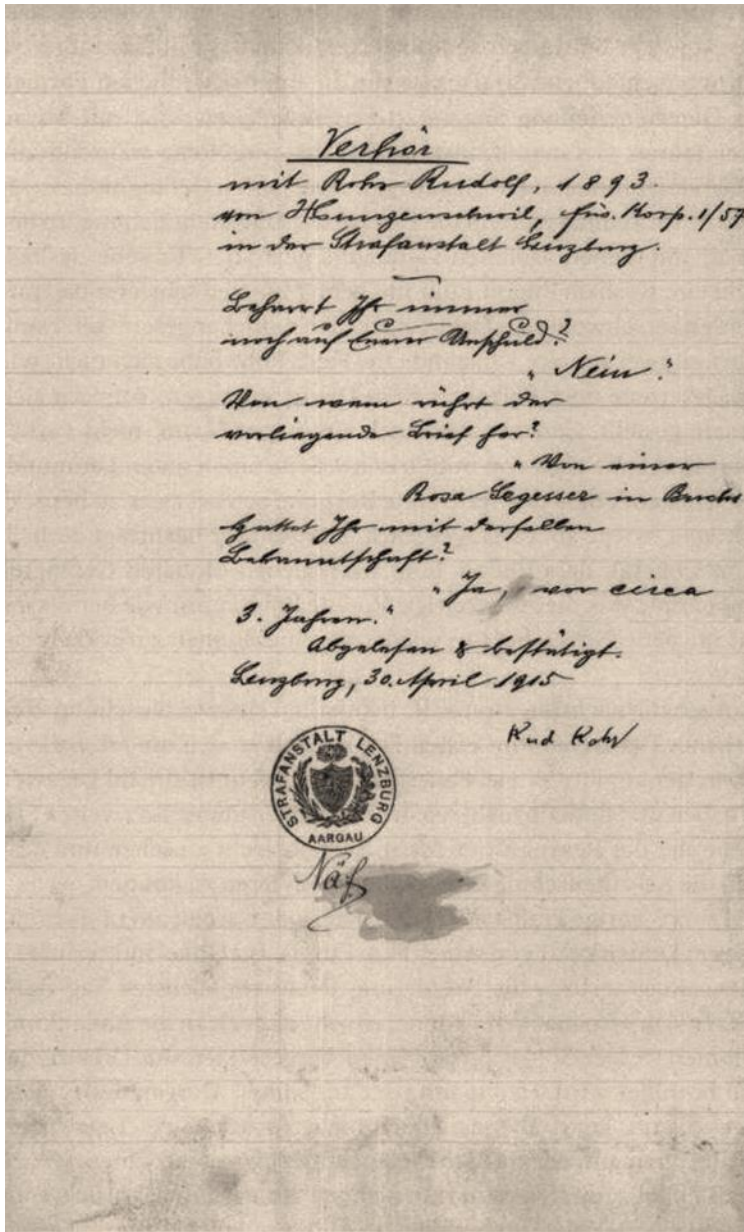 Verhör
mit Rohr Rudolf, 1893.
von Hunzenschwil, Füs. Korp. 1/57
in der Strafanstalt Lenzburg.
Beharrt Ihr immer
noch auf Eurer Unschuld?
„Nein."
Von wem rührt der
vorliegende Brief her?
„Von einer
Rosa Segesser in Buchs
Hattet Ihr mit derselben
Bekanntschaft?
„Ja, vor circa
3. Jahren."
Abgelesen & bestätigt.
Lenzburg, 30. April 1915
Rud Rohr
STRAFANSTALT LENZBURG
AARGAU
Näf